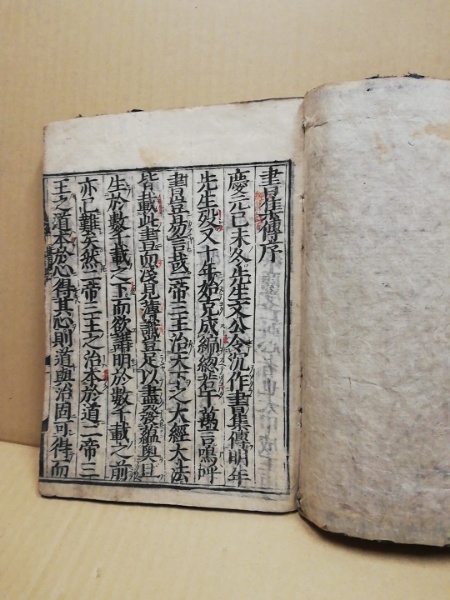 書集傳序
慶元己未冬先生文公令沈作書集傳明年
先生歿又十年始克成編總若干萬言嗚呼
書豈易言哉二帝三王治天下之大經大法
皆載此書而淺見薄識豈足以盡發蘊奧且
生於數千載之下而欲講明於數千載之前
亦已難矣然二帝三王之治本於道二帝三
王之道本於心得其心則道與治固可得而